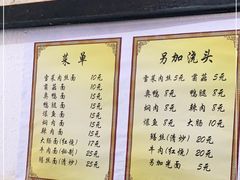 菜单
雪菜肉丝面 10元
蘑菇面 10元
臭鸭面 15元
鸭腿面 15元
焖肉面 15元
爆鱼面 15元
辣肉面 15元
大肠面(红烧) 17元
牛肉面(秘制) 25元
鳝丝面(清炒) 25元
另加浇头
雪菜肉丝 5元
蘑菇 5元
臭鸭 8元
鸭腿 8元
焖肉 8元
辣肉 8元
爆鱼 5元
大肠 10元
鳝丝(清炒) 20元
牛肉(红烧) 20元
另加光面 5元